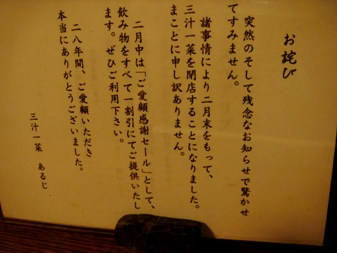 お詫び
突然のそして残念なお知らせで驚かせ
てすみません。
諸事情により二月末をもって、
三汁一菜を閉店することになりました。
まことに申し訳ありません。
二月中は「ご愛顧感謝セール」として、
飲み物をすべて一割引にてご提供いたし
ます。ぜひご利用下さい。
二八年間、ご愛顧いただき
本当にありがとうございました。
三汁一菜 あるじ